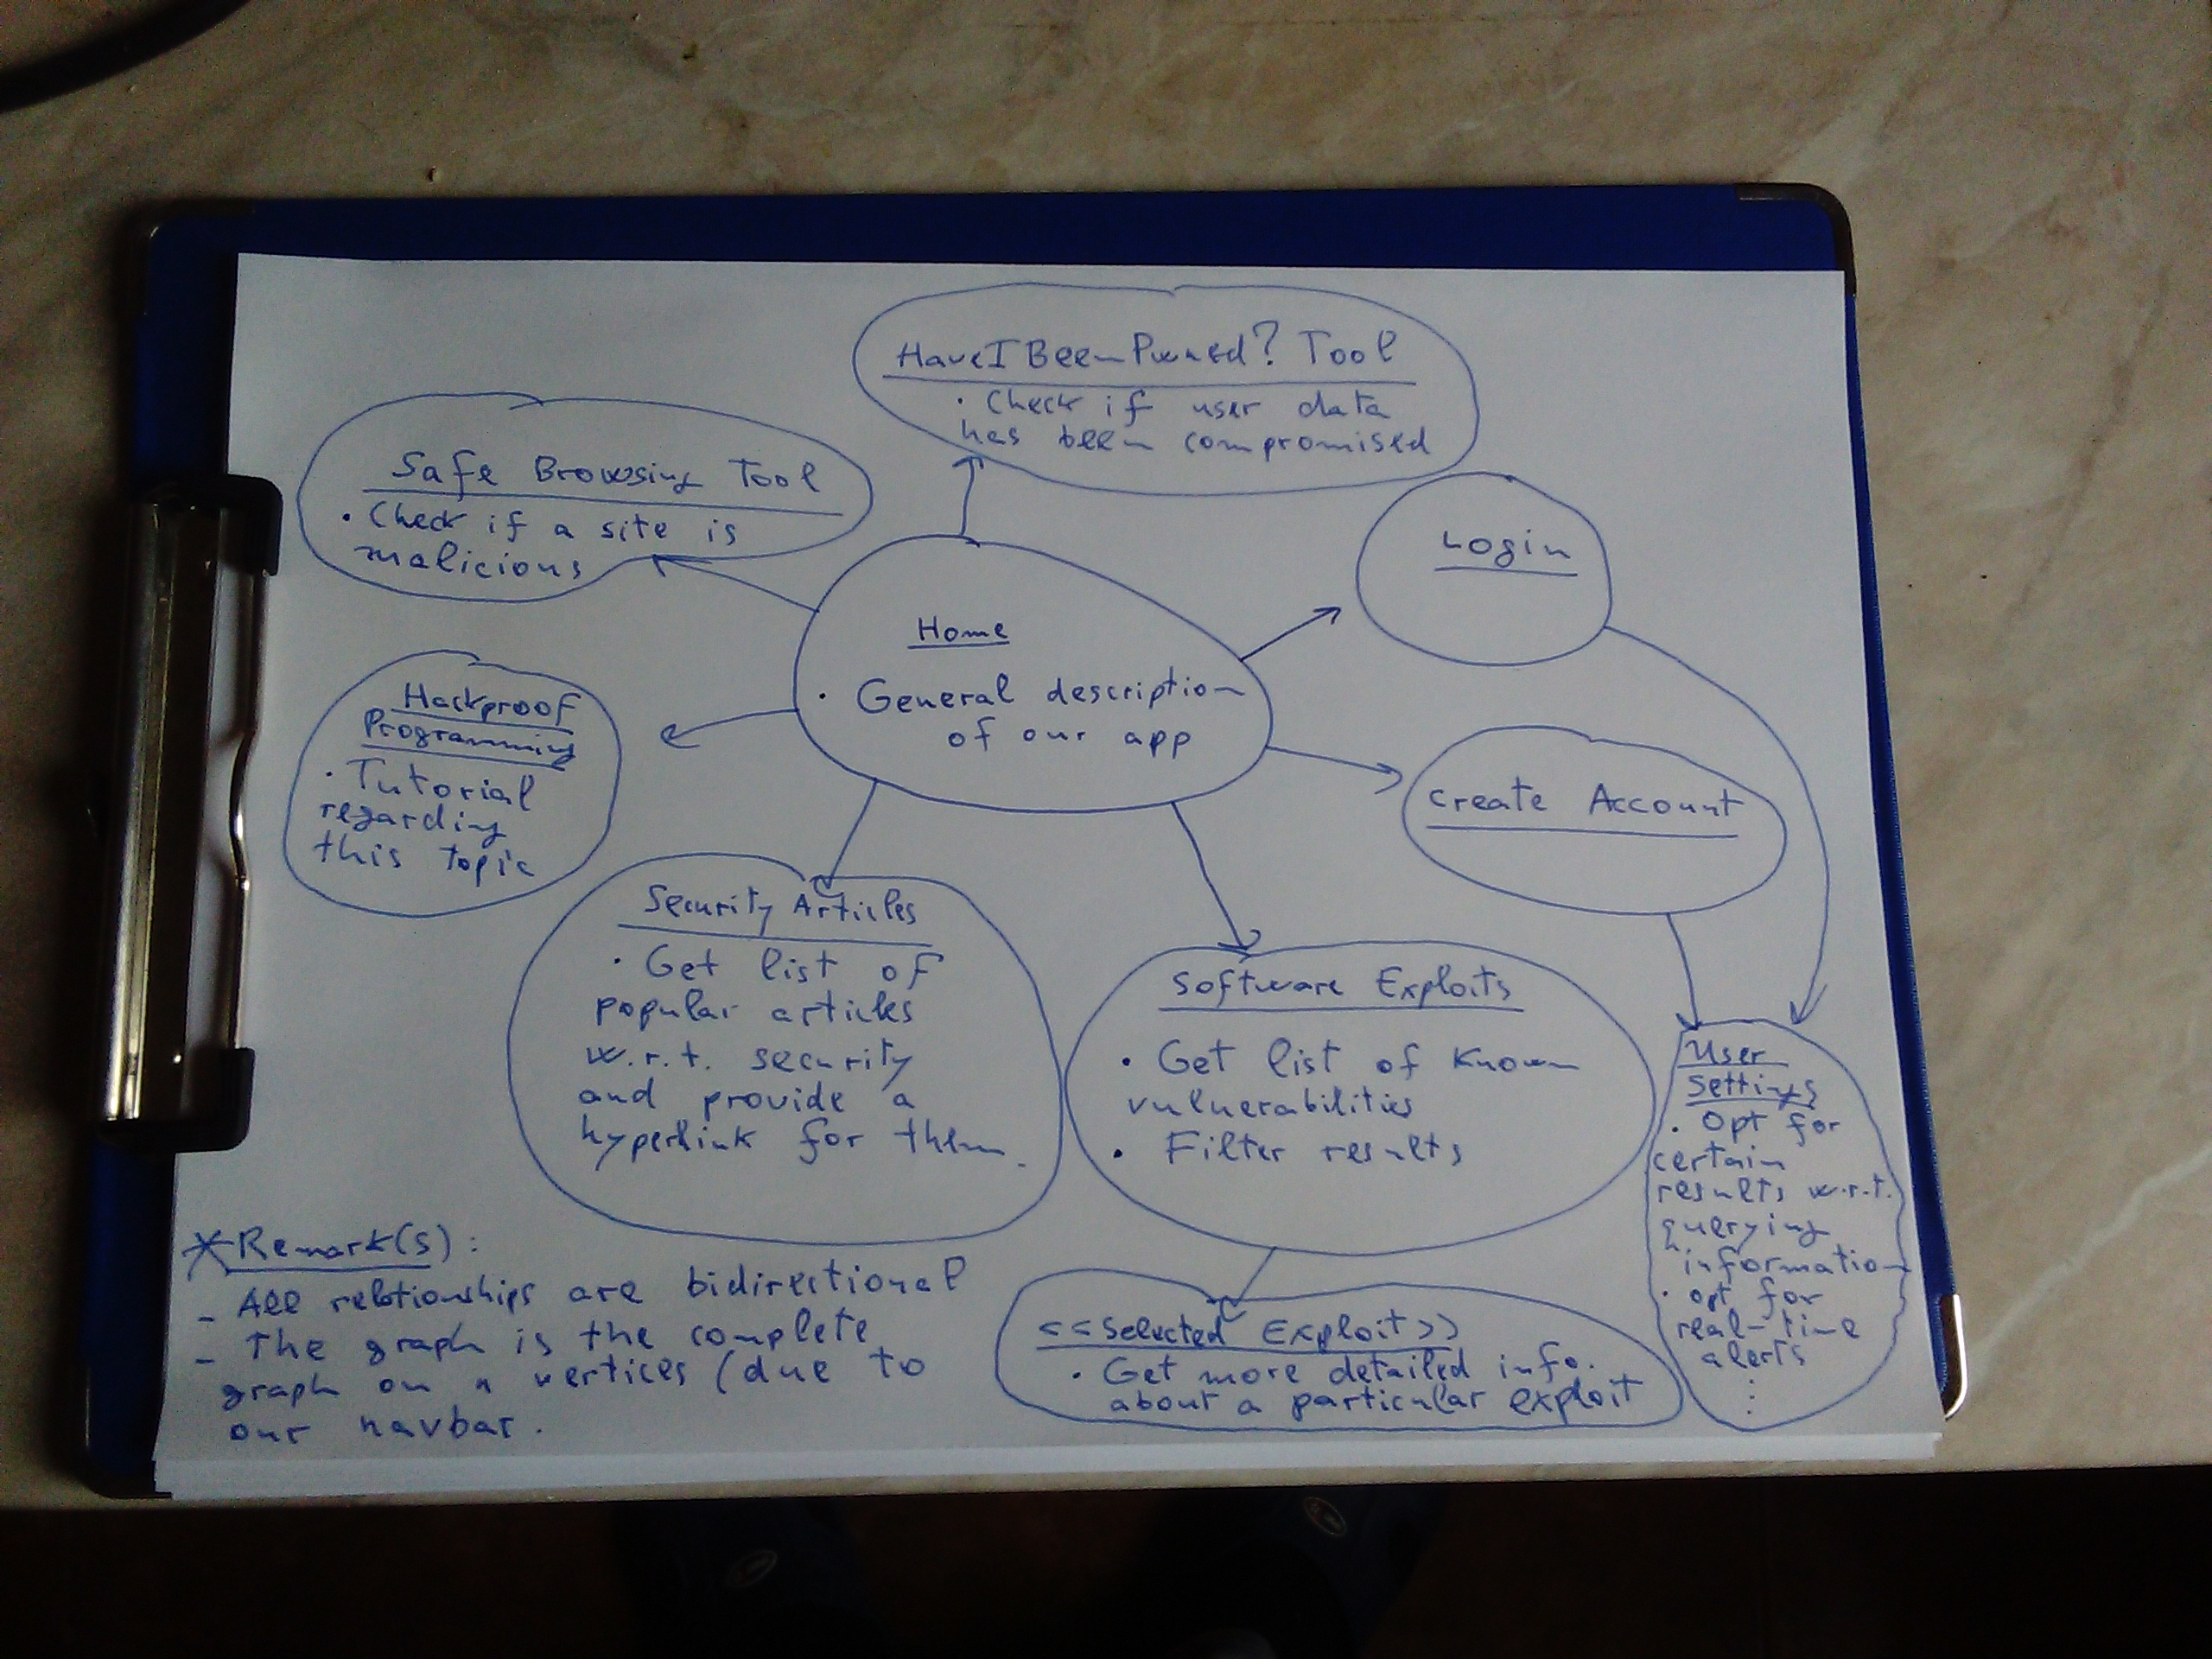 HaveIBeenPwned? Tool
• Check if user data
has been compromised
Safe Browsing Tool
• Check if a site is
malicious
Login
Home
• General description
of our app
Hackproof
Programming
• Tutorial
regarding
this topic
Create Account
Security Articles
• Get list of
popular articles
w.r.t. security
and provide a
hyperlink for them.
Software Exploits
• Get list of known
vulnerabilities
• Filter results
User
Settings
• Opt for
certain
results w.r.t.
querying
information
• opt for
real-time
alerts
⋮
<<Selected Exploit>>
• Get more detailed info.
about a particular exploit
* Remark(s):
- All relationships are bidirectional
- The graph is the complete
graph on n vertices (due to
our navbar.